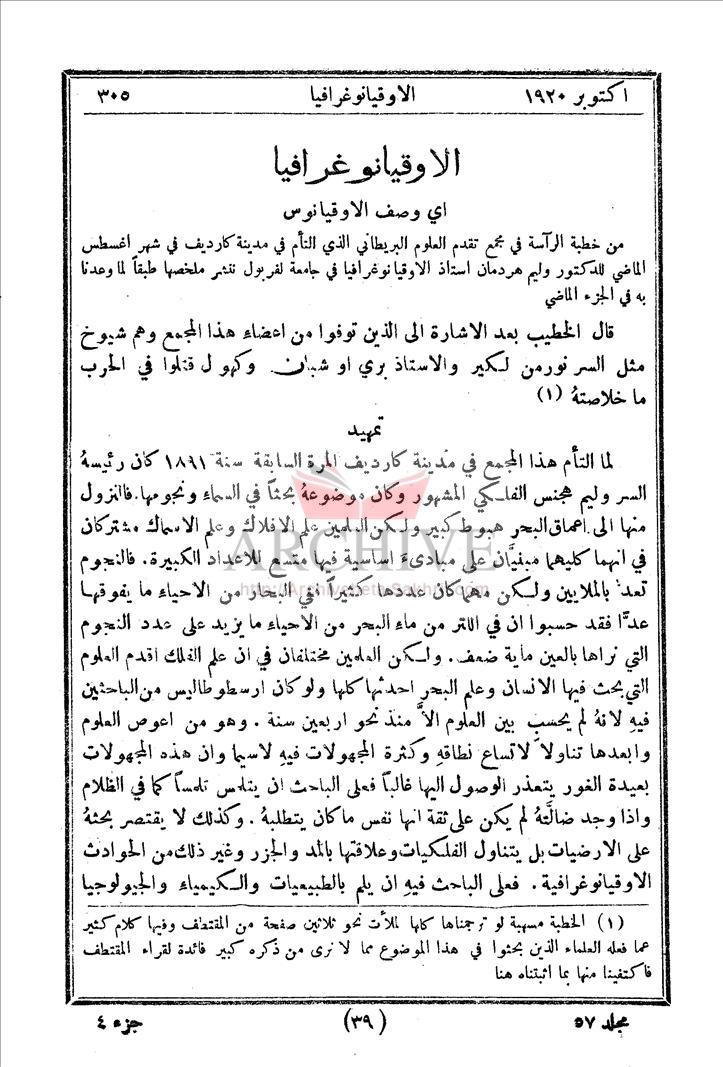 اكتوبر ١٩٢٠ الاوقيانوغرافيا ٣٠٥
الاوقيانوغرافيا
اي وصف الاوقيانوس
من خطبة الرآسة في مجمع تقدم العلوم البريطاني الذي التأم في مدينة كارديف في شهر اغسطس
الماضي للدكتور وليم هردمان استاذ الاوقيانوغرافيا في جامعة لفربول ننشر ملخصها طبقاً لما وعدنا
به في الجزء الماضي
قال الخطيب بعد الاشارة الى الذين توفوا من اعضاء هذا المجمع وهم شيوخ
مثل السر نورمن لكير والاستاذ بري او شبان وكهول قتلوا في الحرب
ما خلاصتهُ (١)
تمهيد
لما التأم هذا المجمع في مدينة كارديف المرة السابقة سنة ١٨٩١ كان رئيسهُ
السر وليم هجنس الفلكي المشهور وكان موضوعهُ بحثاً في السماء ونجومها. فالنزول
منها الى اعماق البحر هبوط كبير ولكن العلمين علم الافلاك وعلم الاسماك مشتركان
في انهما كليهما مبنيَّان على مبادىء اساسية فيها متسع للاعداد الكبيرة. فالنجوم
تعد بالملايين ولكن مهما كان عددها كثيراً ففي البحار من الاحياء ما يفوقها
ARCHIVE
http://Archivebeta.Sakhrit.com
عدًّا فقد حسبوا ان في اللتر من ماء البحر من الاحياء ما يزيد على عدد النجوم
التي نراها بالعين ماية ضعف. ولكن العلمين مختلفان في ان علم الفلك اقدم العلوم
التي بحث فيها الانسان وعلم البحر احدثها كلها ولو كان ارسطوطاليس من الباحثين
فيهِ لانهُ لم يحسب بين العلوم الاَّ منذ نحو اربعين سنة. وهو من اعوص العلوم
وابعدها تناولاً لاتساع نطاقهِ وكثرة المجهولات فيهِ لاسيما وان هذه المجهولات
بعيدة الغور يتعذر الوصول اليها غالباً فعلى الباحث ان يتلمس تلمساً كما في الظلام
واذا وجد ضالَّتهُ لم يكن على ثقة انها نفس ما كان يتطلبهُ. وكذلك لا يقتصر بحثهُ
على الارضيات بل يتناول الفلكيات وعلاقتها بالمد والجزر وغير ذلك من الحوادث
الاوقيانوغرافية. فعلى الباحث فيهِ ان يلم بالطبيعيات والكيمياء والجيولوجيا
(١) الخطبة مسهبة لو ترجمناها كلها لملأت نحو ثلاثين صفحة من المقتطف وفيها كلام كثير
عما فعله العلماء الذين بحثوا في هذا الموضوع مما لا نرى من ذكره كبير فائدة لقراء المقتطف
فاكتفينا منها بما اثبتناه هنا
مجلد ٥٧ (٣٩) جزء ٤